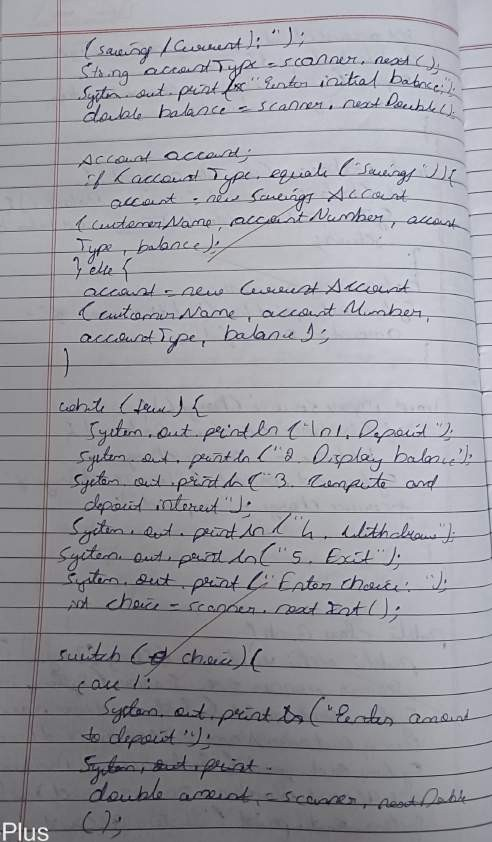 (saving / Current): ");
String accountType = scanner.next();
System.out.print("Enter initial balance:");
double balance = scanner.nextDouble();
Account account;
if (accountType.equals("Savings")){
account = new Savings Account
(customerName, accountNumber, account
Type, balance);
} else {
account = new Current Account
(customerName, account Number,
accountType, balance);
}
while (true) {
System.out.println("\n1. Deposit");
System.out.println("2. Display balance");
System.out.println("3. Compute and
deposit interest");
System.out.println("4. Withdraw");
System.out.println("5. Exit");
System.out.print("Enter choice: ");
int choice = scanner.next Int();
switch (choice) {
case 1:
System.out.print ("Enter amount
to deposit");
System.out.print.
double amount = scanner.nextDouble
();
Plus